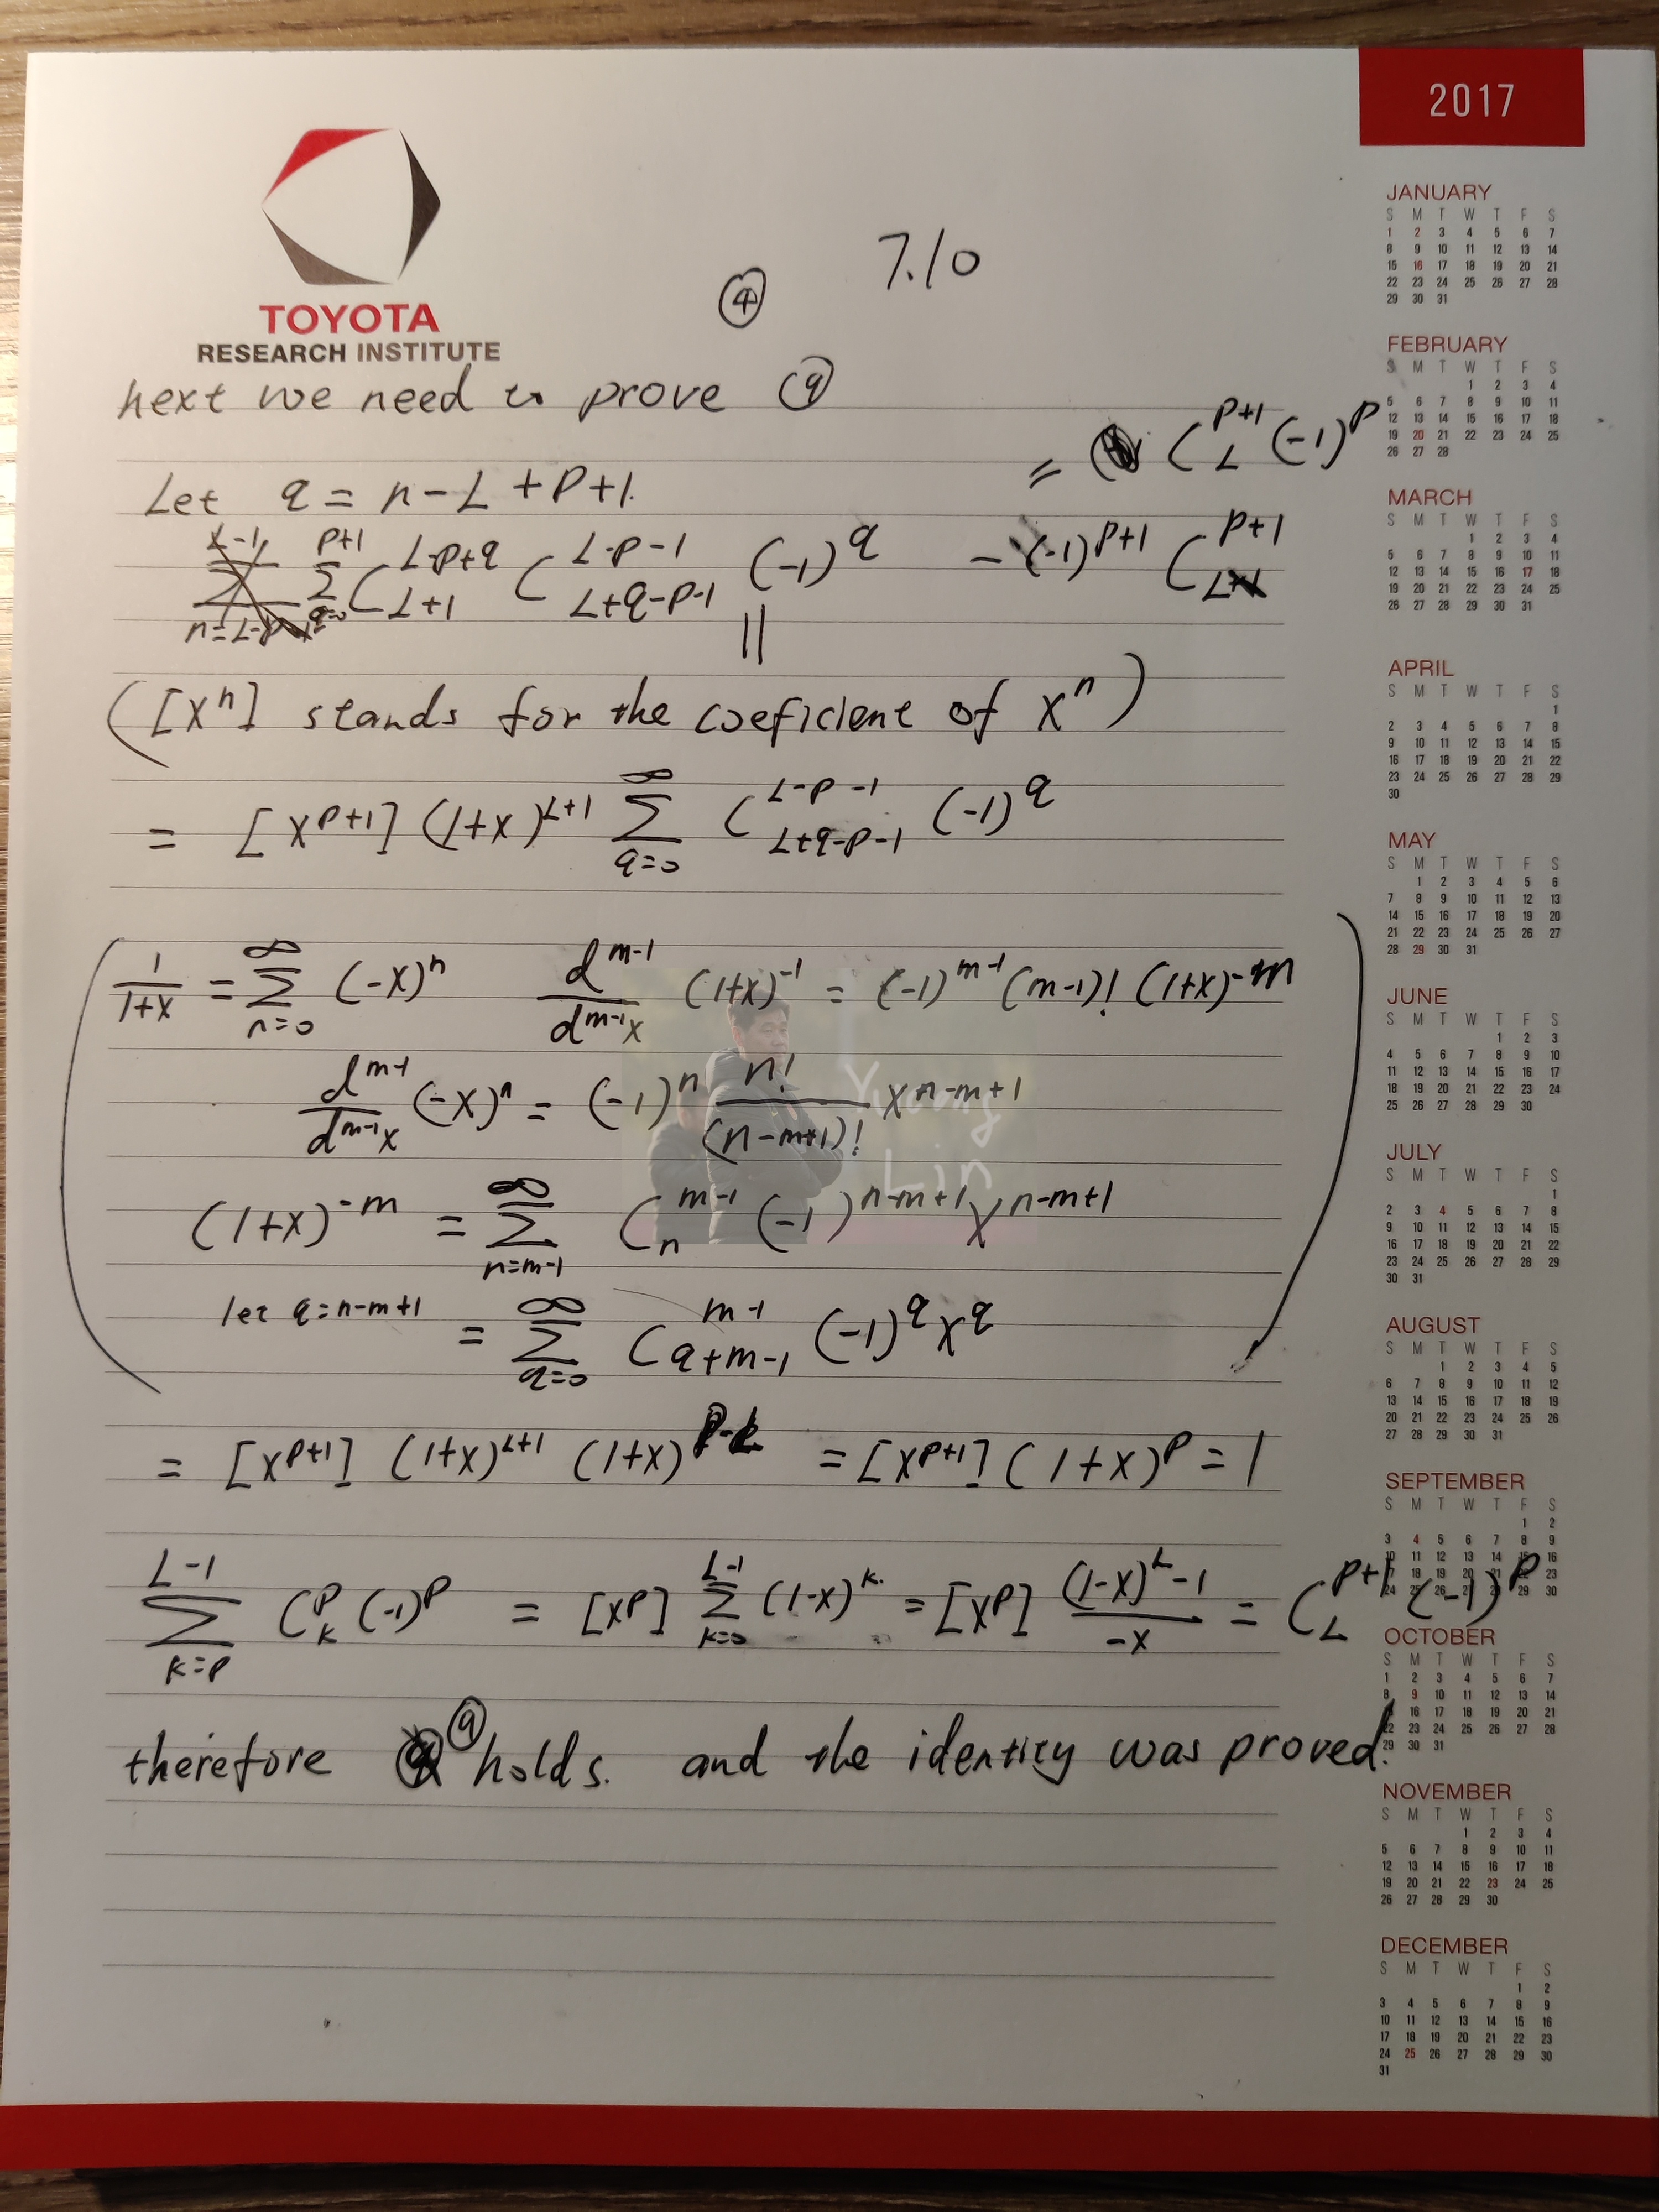 2017
TOYOTA
RESEARCH INSTITUTE
④
7.10
next we need to prove ⑨
Let q = n-L+P+1.
= C_L^{P+1} (-1)^P
\sum_{q=0}^{P+1} C_{L+1}^{L-P+q} C_{L+q-P-1}^{L-P-1} (-1)^q - (-1)^{P+1} C_L^{P+1}
||
([x^n] stands for the coeficient of x^n)
= [x^{P+1}] (1+x)^{L+1} \sum_{q=0}^{∞} C_{L+q-P-1}^{L-P-1} (-1)^q
\frac{1}{1+x} = \sum_{n=0}^{∞} (-x)^n \frac{d^{m-1}}{d^{m-1}x} (1+x)^{-1} = (-1)^{m-1} (m-1)! (1+x)^{-m}
\frac{d^{m-1}}{d^{m-1}x} (-x)^n = (-1)^n \frac{n!}{(n-m+1)!} x^{n-m+1}
(1+x)^{-m} = \sum_{n=m-1}^{∞} C_n^{m-1} (-1)^{n-m+1} x^{n-m+1}
let q=n-m+1 = \sum_{q=0}^{∞} C_{q+m-1}^{m-1} (-1)^q x^q
Yunong
Lin
= [x^{P+1}] (1+x)^{L+1} (1+x)^{P-L} = [x^{P+1}] (1+x)^P = 1
\sum_{k=P}^{L-1} C_k^P (-1)^P = [x^P] \sum_{k=0}^{L-1} (1-x)^k = [x^P] \frac{(1-x)^L - 1}{-x} = C_L^{P+1} (-1)^P
therefore ⑨ holds. and the identity was proved.
JANUARY
S M T W T F S
1 2 3 4 5 6 7
8 9 10 11 12 13 14
15 16 17 18 19 20 21
22 23 24 25 26 27 28
29 30 31
FEBRUARY
S M T W T F S
1 2 3 4
5 6 7 8 9 10 11
12 13 14 15 16 17 18
19 20 21 22 23 24 25
26 27 28
MARCH
S M T W T F S
1 2 3 4
5 6 7 8 9 10 11
12 13 14 15 16 17 18
19 20 21 22 23 24 25
26 27 28 29 30 31
APRIL
S M T W T F S
1
2 3 4 5 6 7 8
9 10 11 12 13 14 15
16 17 18 19 20 21 22
23 24 25 26 27 28 29
30
MAY
S M T W T F S
1 2 3 4 5 6
7 8 9 10 11 12 13
14 15 16 17 18 19 20
21 22 23 24 25 26 27
28 29 30 31
JUNE
S M T W T F S
1 2 3
4 5 6 7 8 9 10
11 12 13 14 15 16 17
18 19 20 21 22 23 24
25 26 27 28 29 30
JULY
S M T W T F S
1
2 3 4 5 6 7 8
9 10 11 12 13 14 15
16 17 18 19 20 21 22
23 24 25 26 27 28 29
30 31
AUGUST
S M T W T F S
1 2 3 4 5
6 7 8 9 10 11 12
13 14 15 16 17 18 19
20 21 22 23 24 25 26
27 28 29 30 31
SEPTEMBER
S M T W T F S
1 2
3 4 5 6 7 8 9
10 11 12 13 14 15 16
17 18 19 20 21 22 23
24 25 26 27 28 29 30
OCTOBER
S M T W T F S
1 2 3 4 5 6 7
8 9 10 11 12 13 14
16 17 18 19 20 21
22 23 24 25 26 27 28
29 30 31
NOVEMBER
S M T W T F S
1 2 3 4
5 6 7 8 9 10 11
12 13 14 15 16 17 18
19 20 21 22 23 24 25
26 27 28 29 30
DECEMBER
S M T W T F S
1 2
3 4 5 6 7 8 9
10 11 12 13 14 15 16
17 18 19 20 21 22 23
24 25 26 27 28 29 30
31